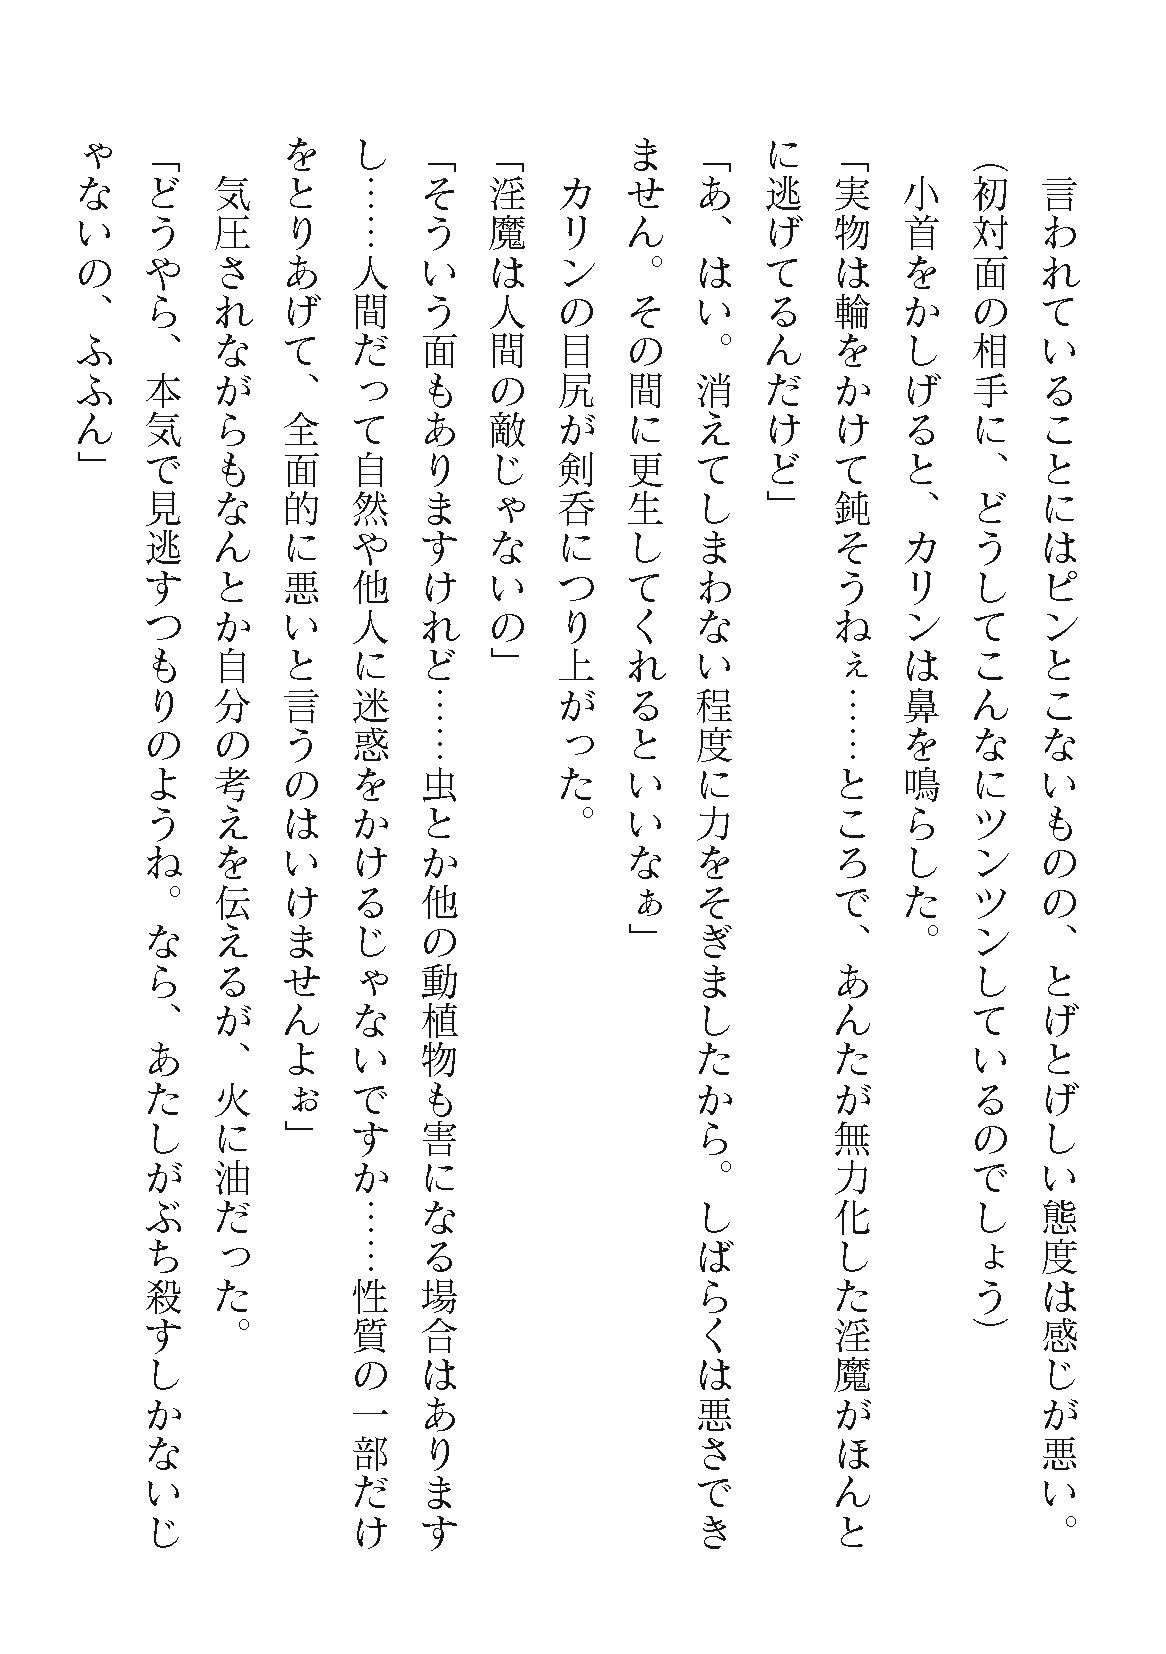 言われていることにはピンとこないものの、とげとげしい態度は感じが悪い。
（初対面の相手に、どうしてこんなにツンツンしているのでしょう）
　小首をかしげると、カリンは鼻を鳴らした。
「実物は輪をかけて鈍そうねぇ……ところで、あんたが無力化した淫魔がほんと
に逃げてるんだけど」
「あ、はい。消えてしまわない程度に力をそぎましたから。しばらくは悪さでき
ません。その間に更生してくれるといいなぁ」
　カリンの目尻が剣呑につり上がった。
「淫魔は人間の敵じゃないの」
「そういう面もありますけれど……虫とか他の動植物も害になる場合はあります
し……人間だって自然や他人に迷惑をかけるじゃないですか……性質の一部だけ
をとりあげて、全面的に悪いと言うのはいけませんよぉ」
　気圧されながらもなんとか自分の考えを伝えるが、火に油だった。
「どうやら、本気で見逃すつもりのようね。なら、あたしがぶち殺すしかないじ
ゃないの、ふふん」